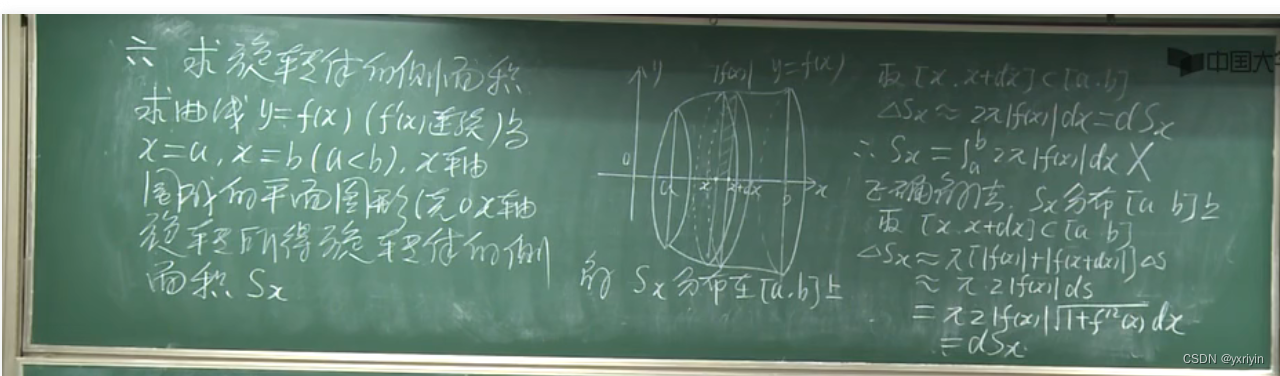 六 求旋转体的侧面积
求曲线 y=f(x) (f'(x)连续)与
x=a, x=b (a<b), x轴
围成的平面图形绕ox轴
旋转所得旋转体的侧
面积 Sx
y |f(x)| y=f(x)
0 a x x+dx b x
解 Sx 分布在[a,b]上
取 [x, x+dx]⊂[a,b]
ΔSx ≈ 2π|f(x)|dx = dSx
∴ Sx = ∫ₐᵇ 2π|f(x)|dx ×
正确解法: Sx分布[a b]上
取 [x, x+dx]⊂[a b]
ΔSx ≈ π[|f(x)|+|f(x+dx)|]ΔS
≈ π 2|f(x)|ds
= π2|f(x)|√(1+f'²(x)) dx
= dSx
中国大
CSDN @yxriyin